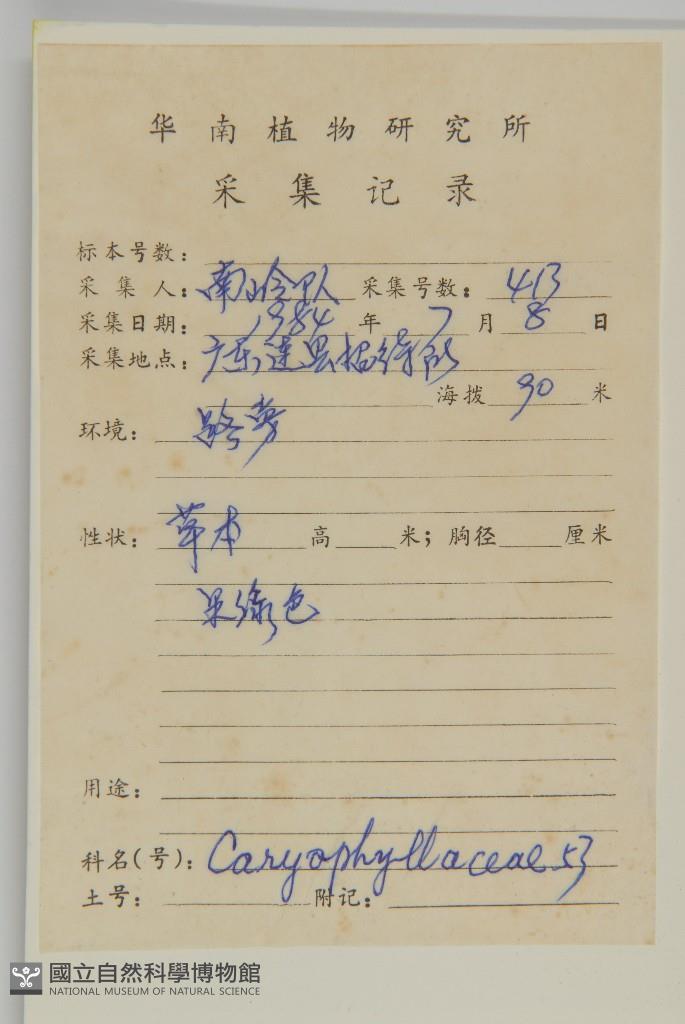 华南植物研究所
采集记录
标本号数:
采集人: 南岭队 采集号数: 413
采集日期: 1984 年 7 月 8 日
采集地点: 广东连县招待所
海拨 90 米
环境: 路旁
性状: 草本 高 米; 胸径 厘米
果绿色
用途:
科名(号): Caryophyllaceae 53
土号: 附记:
國立自然科學博物館
NATIONAL MUSEUM OF NATURAL SCIENCE